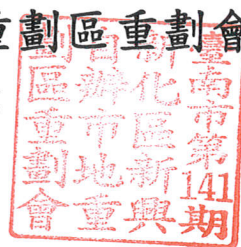 重劃區重劃會
臺南市第141期
新化區新興
自辦市地重
劃區重劃會